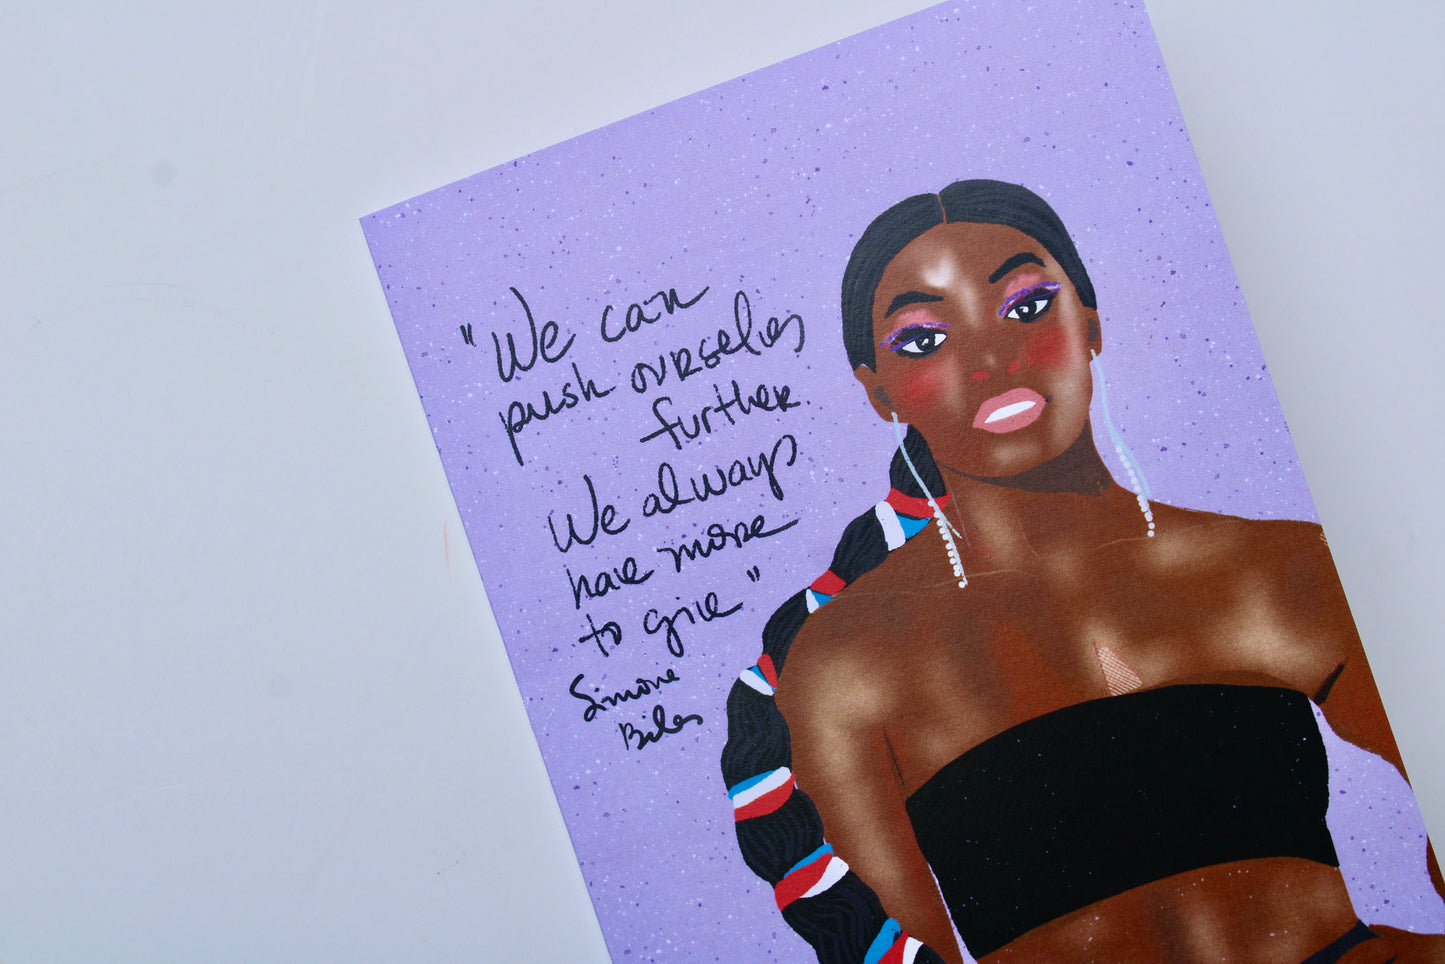 "We can
push ourselves
further.
We always
have more
to give"
Simone
Biles